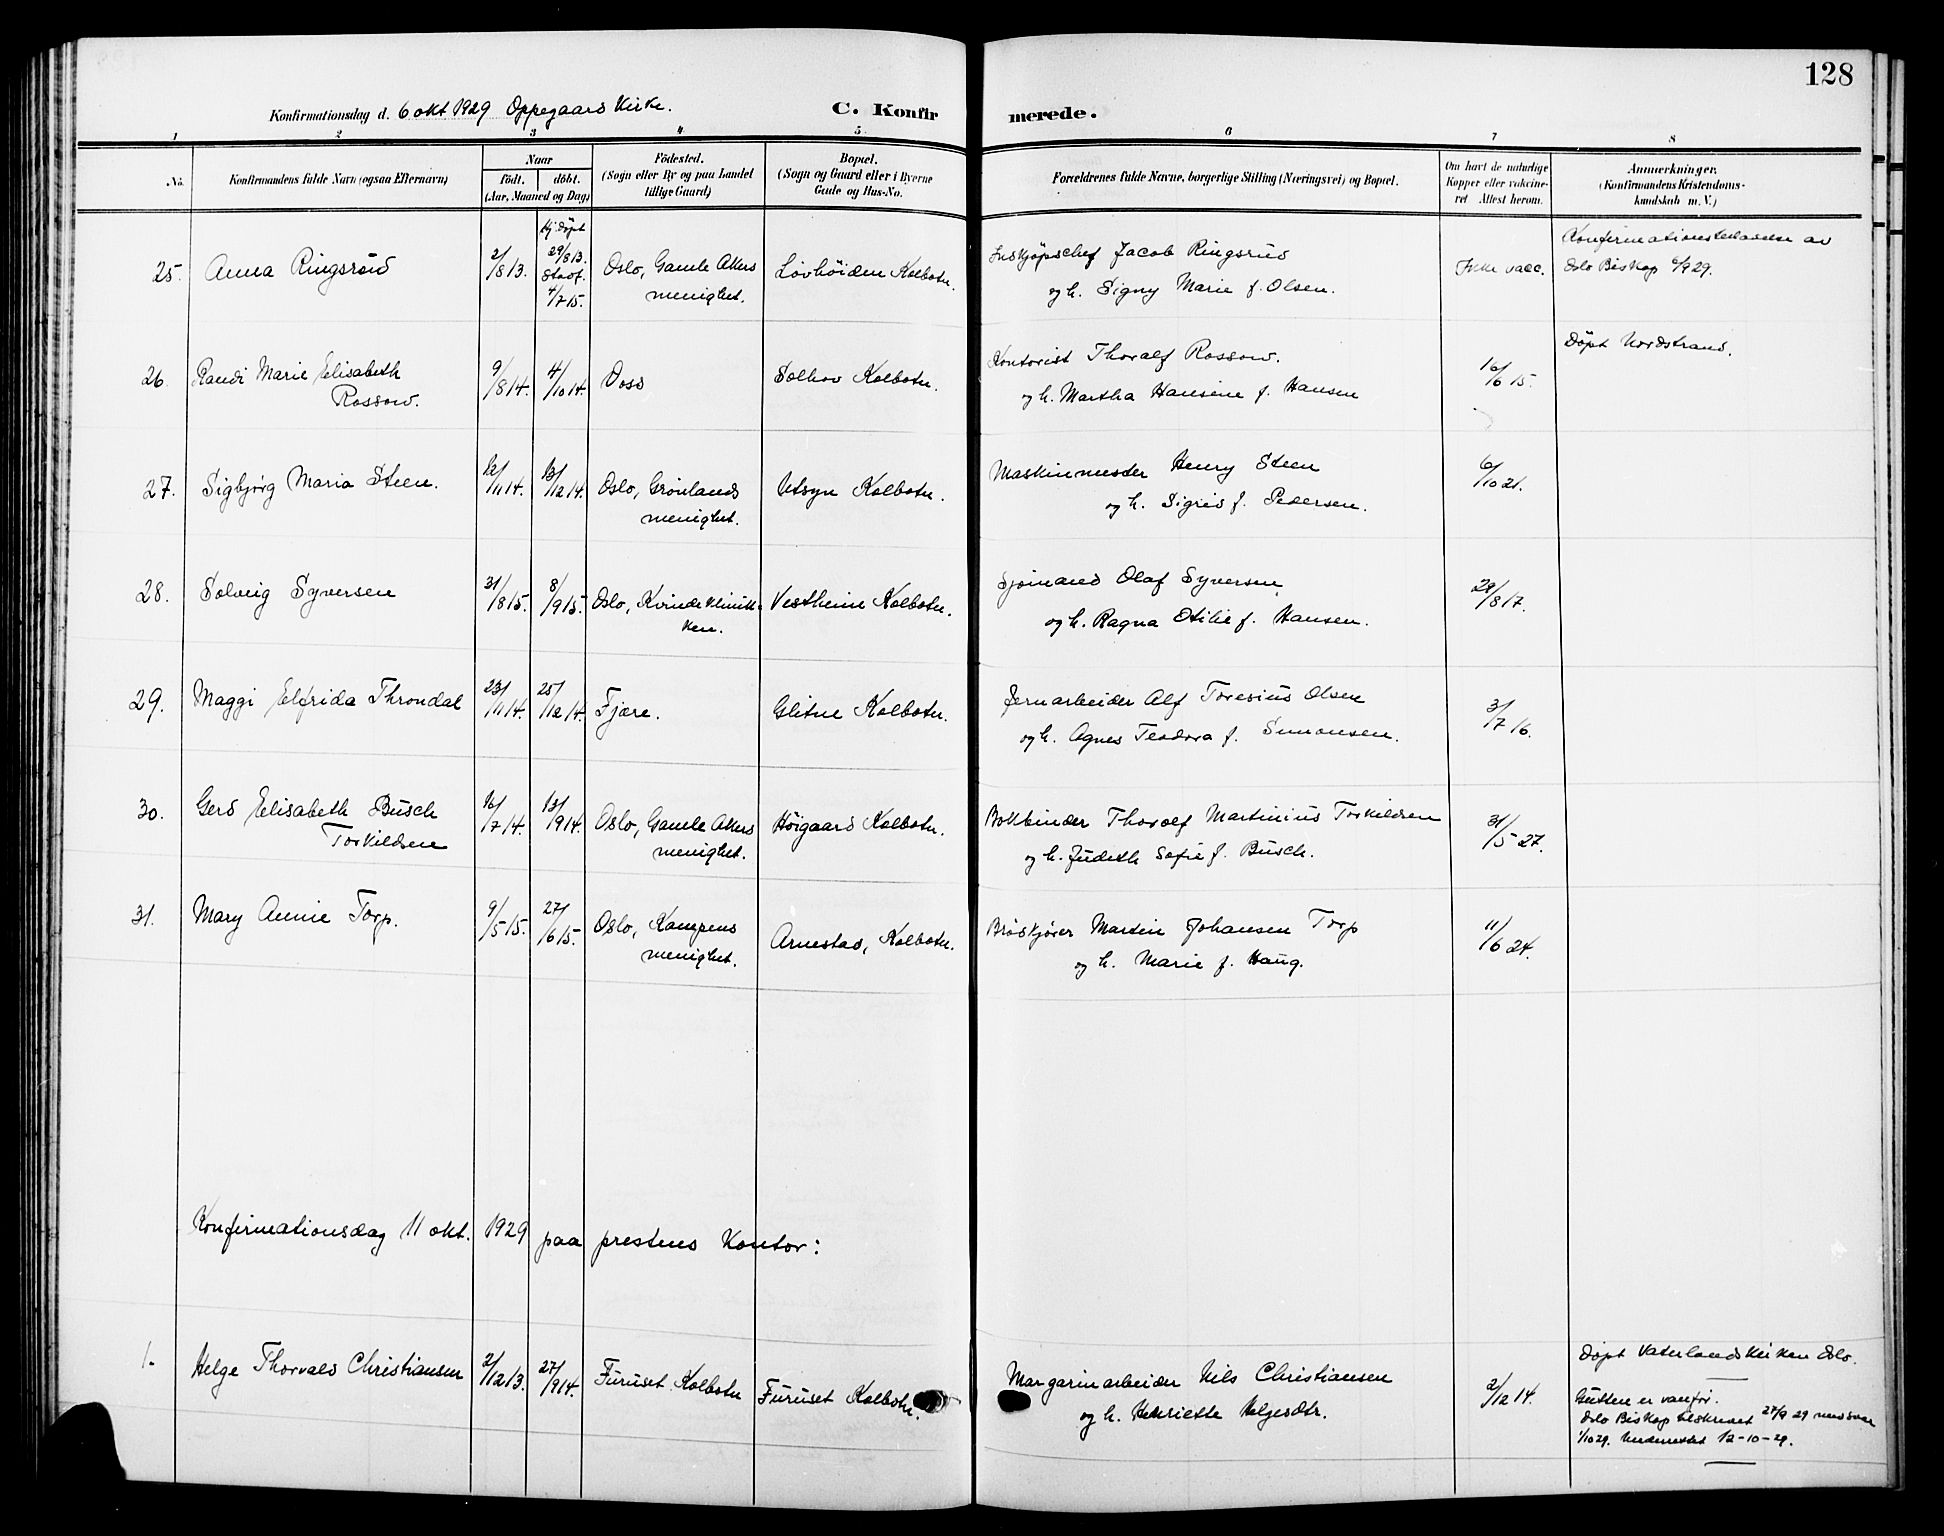 128
Konfirmationsdag d. 6 okt 1929 Oppegaard Kirke.
C. Konfirmerede.
1 2 3 4 5 6 7 8
No.
Konfirmandens fulde Navn (ogsaa Efternavn)
Naar
födt. döbt.
(Aar, Maaned og Dag)
Födested.
(Sogn eller By og paa Landet
tillige Gaard)
Bopæl.
(Sogn og Gaard eller i Byerne
Gade og Hus-No.
Forældrenes fulde Navne, borgerlige Stilling (Næringsvei) og Bopæl.
Om havt de naturlige
Kopper eller vakcine-
ret Attest herom.
Anmerkninger.
(Konfirmandens Kristendoms-
kundskab m. V.)
25. Anna Ringsrud
2/8 13.
Hj. döpt
29/8 13.
Stadf.
4/7 15.
Oslo, Gamle Akers
menighet.
Lövhöiden Kolbotn.
Indkjöpschef Jacob Ringsrud
og h. Signy Marie f. Olsen.
Ikke vacc.
Konfirmationstilladelse av
Oslo Biskop 6/9 29.
26. Randi Marie Elisabeth
Rossow.
9/8 14. 4/10 14.
Voss
Solhov Kolbotn.
Kontorist Thoralf Rossow.
og h. Martha Hansine f. Hansen
16/6 15.
Döpt Nordstrand.
27. Sigbjørg Maria Steen.
12/11 14. 13/12 14.
Oslo, Grönlands
menighet.
Utsyn Kolbotn.
Maskinmester Henry Steen
og h. Sigrid f. Pedersen.
6/10 21.
28. Solveig Syversen
31/8 15. 8/9 15.
Oslo, Kvindeklinik-
ken.
Vestheim Kolbotn.
Sjömand Olaf Syversen
og h. Ragna Otilie f. Hansen.
29/8 17.
29. Maggi Elfrida Throndal
23/11 14. 25/12 14.
Fjære.
Glitne Kolbotn.
Jernarbeider Alf Toresius Olsen
og h. Agnes Teodora f. Simonsen.
3/7 16.
30. Gerd Elisabeth Busch
Torkildsen
16/7 14. 13/9 14.
Oslo, Gamle Akers
menighet.
Höigaard Kolbotn.
Bokbinder Thoralf Martinius Torkildsen
og h. Judith Sofie f. Busch.
31/5 27.
31. Mary Annie Torp.
9/5 15. 27/6 15.
Oslo, Kampens
menighet.
Arnestad, Kolbotn.
Brödkjörer Martin Johansen Torp
og h. Marie f. Haug.
11/6 24.
Konfirmationsdag 11 okt. 1929 paa prestens Kontor:
1. Helge Thorvald Christiansen
2/12 13. 27/9 14.
Furuset Kolbotn
Furuset Kolbotn.
Margarinarbeider Nils Christiansen
og h. Henriette Helgesdtr.
2/12 14.
Döpt Vaterlandskirken Oslo.
Gutten er vanför.
Oslo Biskop tilskrevet 27/9 29 med svar
1/10 29. Underrettet 12-10-29.